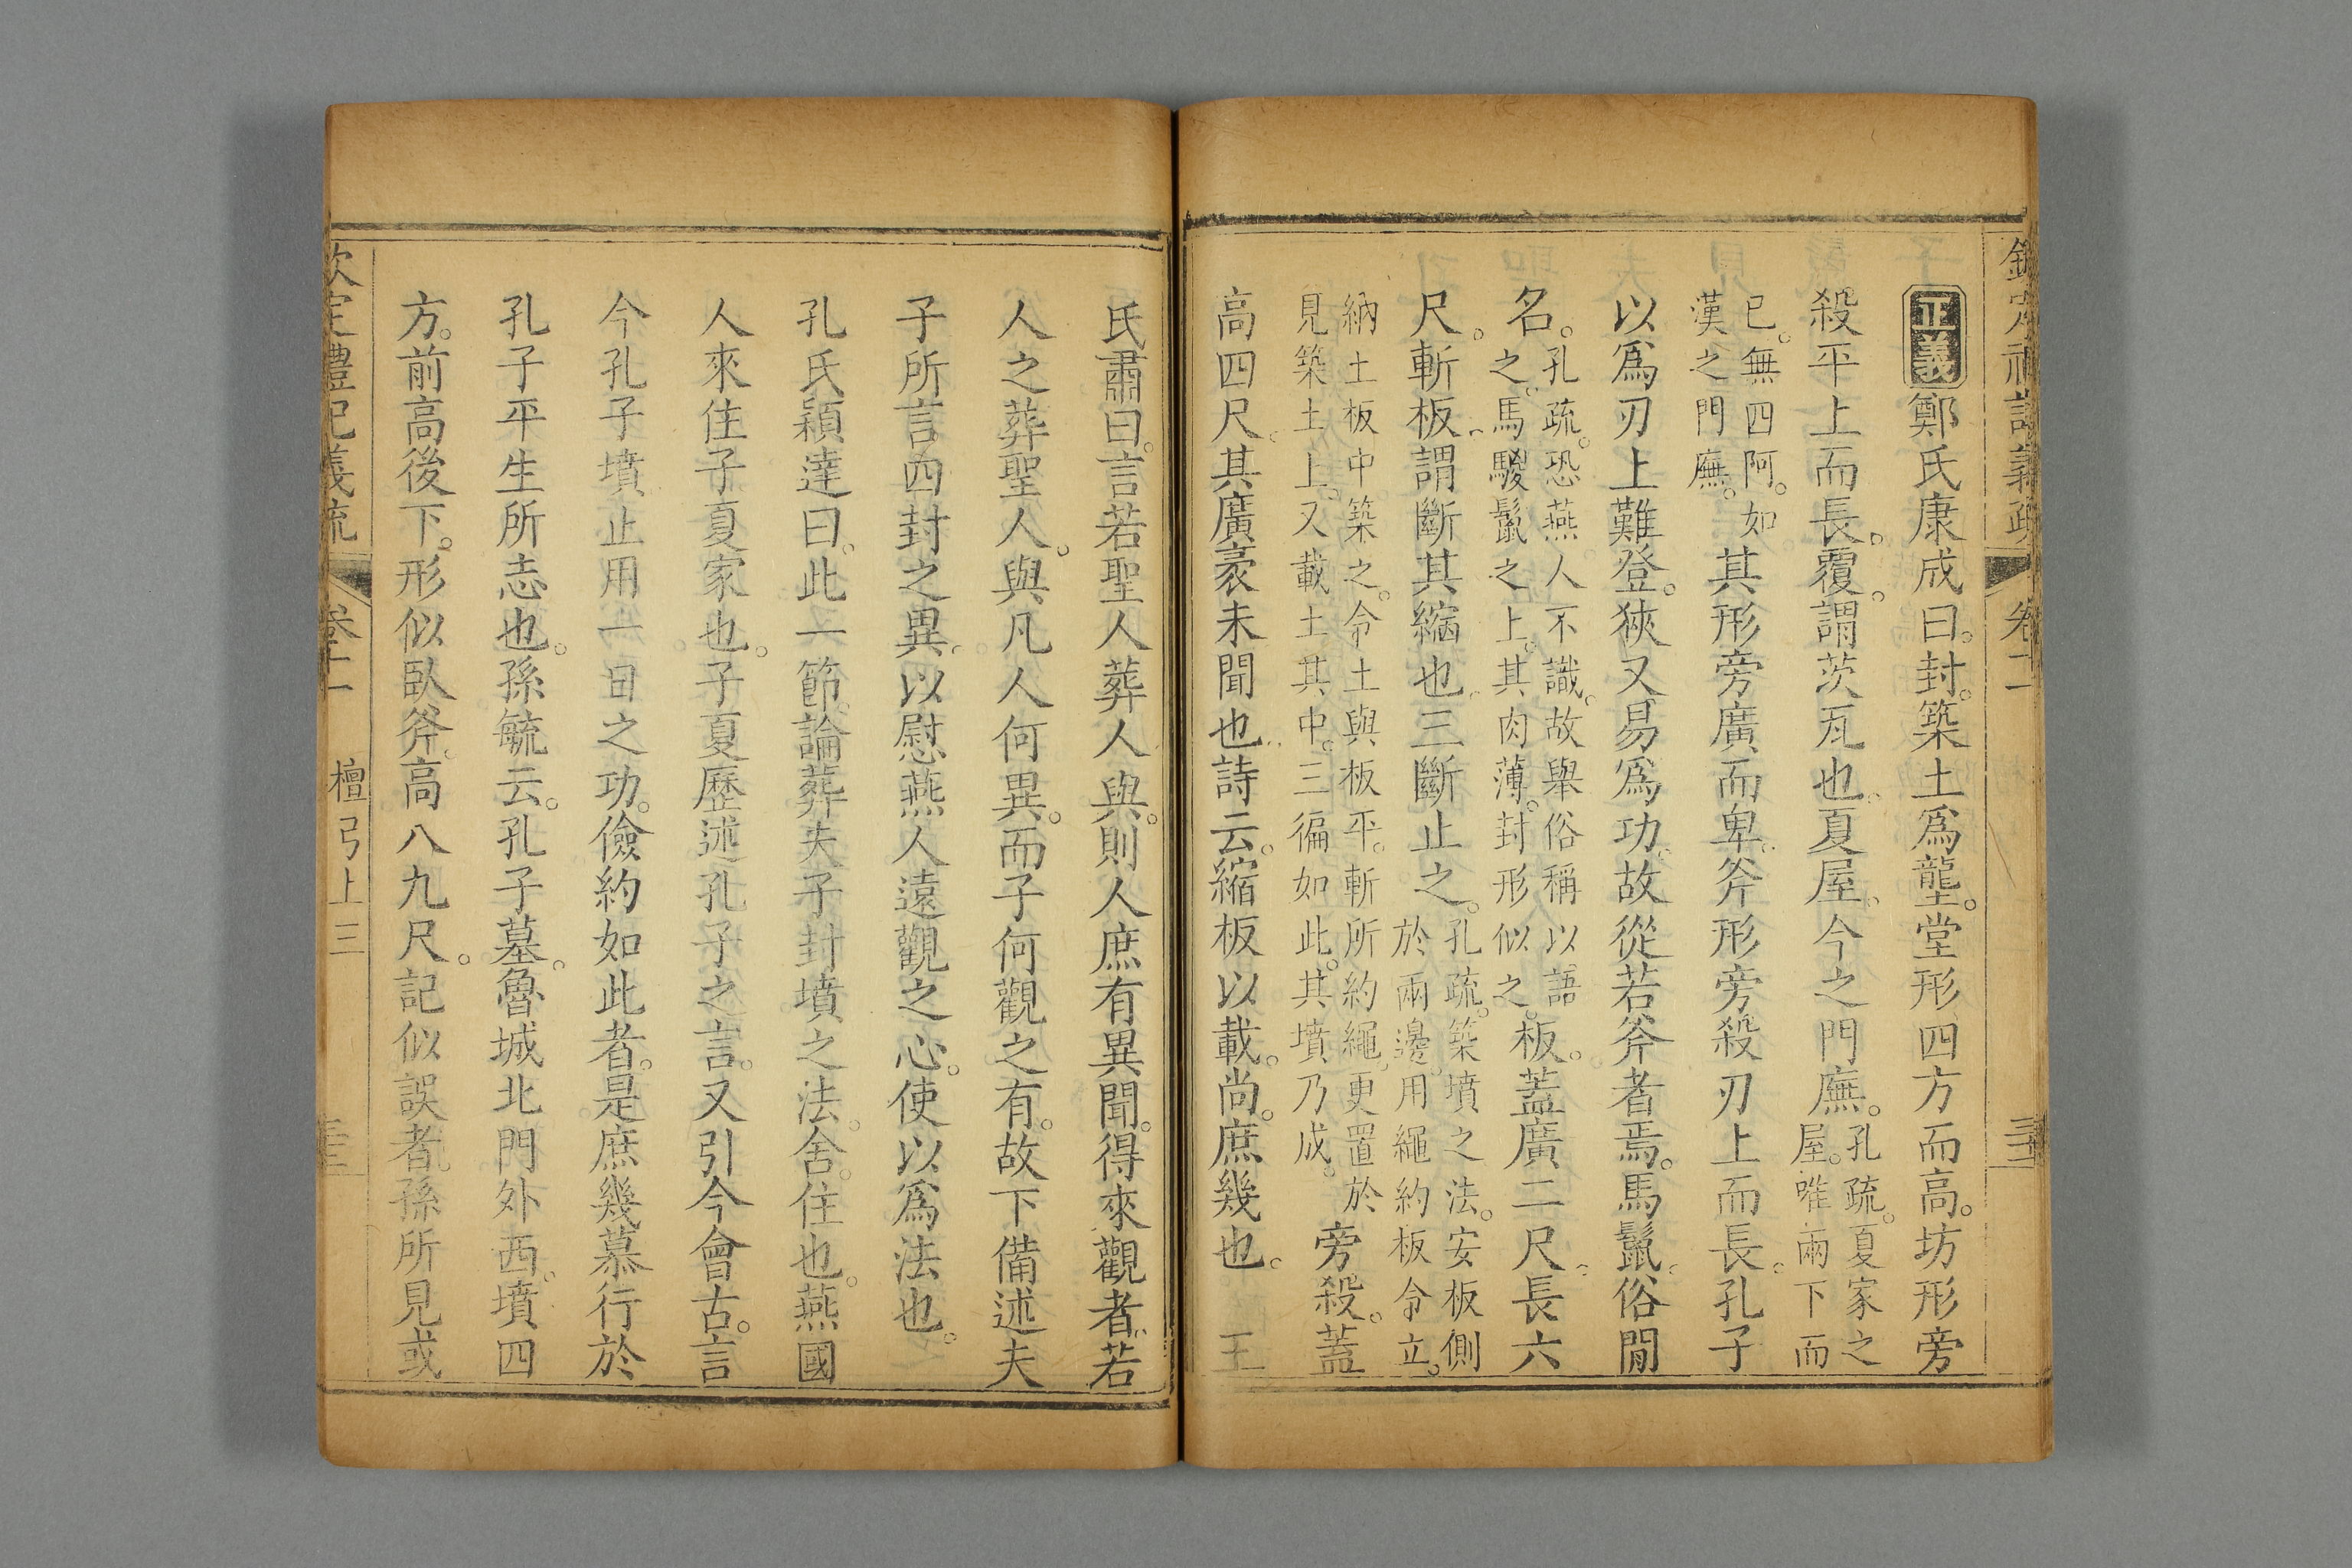 正義鄭氏康成曰。封。築土爲壟。堂形四方而高。坊形旁
殺平上而長。覆。謂茨瓦也。夏屋。今之門廡。孔疏。夏家之
屋。唯兩下而
已。無四阿。如
漢之門廡。其形旁廣而卑。斧形旁殺刃上而長。孔子
以爲刃上難登。狹又易爲功。故從若斧者焉。馬鬛。俗閒
名。孔疏。恐燕人不識。故舉俗稱以語
之。馬騣鬛之上。其肉薄。封形似之。板。蓋廣二尺。長六
尺。斬板。謂斷其縮也。三斷止之。孔疏。築墳之法。安板側
於兩邊。用繩約板令立。
納土板中築之。令土與板平。斬所約繩。更置於
見築土上。又載土其中。三徧如此。其墳乃成。旁殺。蓋
高四尺。其廣袤未聞也。詩云。縮板以載。尚。庶幾也。　王
氏肅曰。言若聖人葬人與。則人庶有異聞。得來觀者。若
人之葬聖人。與凡人何異。而子何觀之有。故下備述夫
子所言四封之異。以慰燕人遠觀之心。使以爲法也。
孔氏穎達曰。此一節。論葬夫子封墳之法。舍。住也。燕國
人來住子夏家也。子夏歷述孔子之言。又引今會古。言
今孔子墳止用一日之功。儉約如此者。是庶幾慕行於
孔子平生所志也。孫毓云。孔子墓。魯城北門外西。墳四
方。前高後下。形似臥斧。高八九尺。記似誤者。孫所見或
欽定禮記義疏　卷十一　檀弓上三